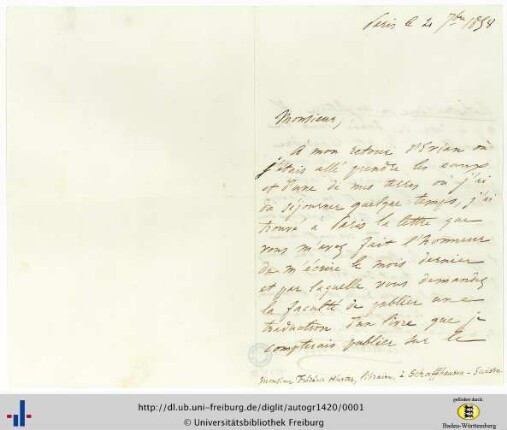 Paris le 21 7bre 1858
Monsieur,
A mon retour d'Evian où
j'étais allé prendre les eaux
et d'une de mes terres où j'ai
dû séjourner quelque temps, j'ai
trouvé à Paris la lettre que
vous m'avez fait l'honneur
de m'écrire le mois dernier
et par laquelle vous demandez
la faculté de publier une
traduction d'un livre que je
comptais publier sur le
Monsieur Frédéric Hurter, libraire, à Schaffhausen - Suisse
http://dl.ub.uni-freiburg.de/diglit/autogr1420/0001
© Universitätsbibliothek Freiburg
gefördert durch:
Baden-Württemberg